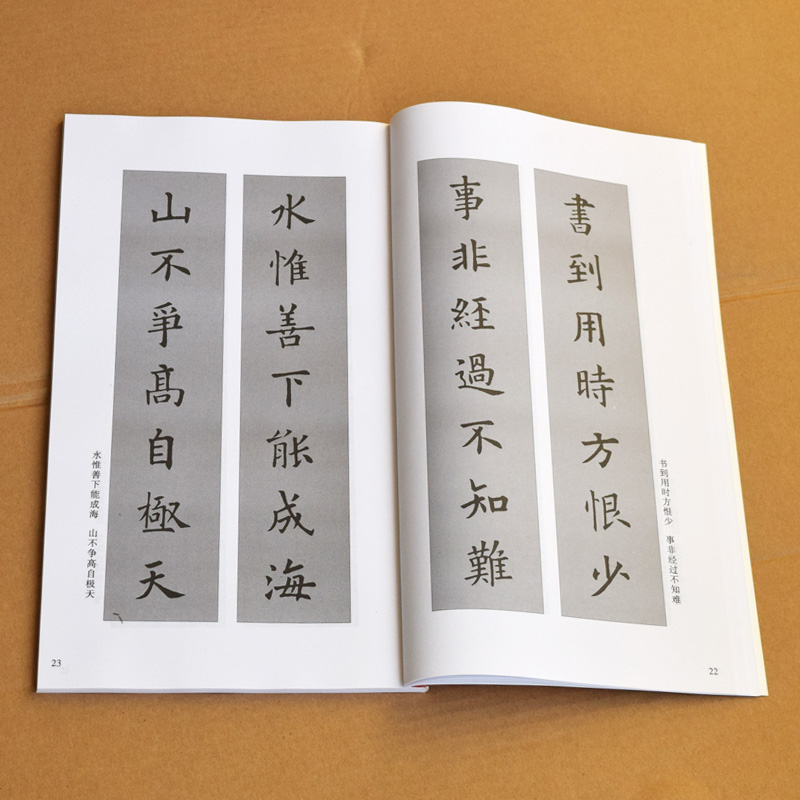 書到用時方恨少
事非經過不知難
书到用时方恨少 事非经过不知难
22
水惟善下能成海
山不爭高自極天
水惟善下能成海 山不争高自极天
23